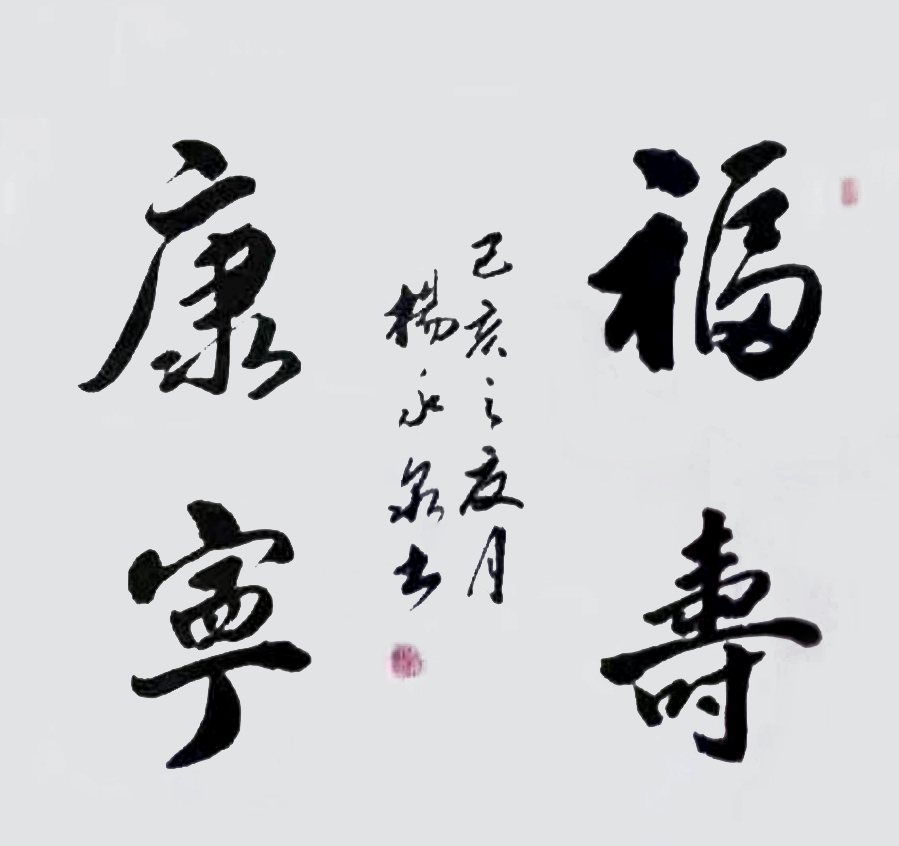 福壽
康寧
己亥之夏月
楊永泉书